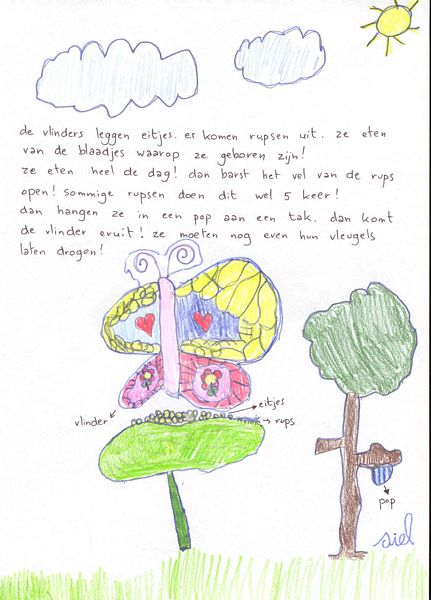 de vlinders leggen eitjes. er komen rupsen uit. ze eten
van de blaadjes waarop ze geboren zijn!
ze eten heel de dag! dan barst het vel van de rups
open! sommige rupsen doen dit wel 5 keer!
dan hangen ze in een pop aan een tak. dan komt
de vlinder eruit! ze moeten nog even hun vleugels
laten drogen!
eitjes
vlinder
rups
pop
siel